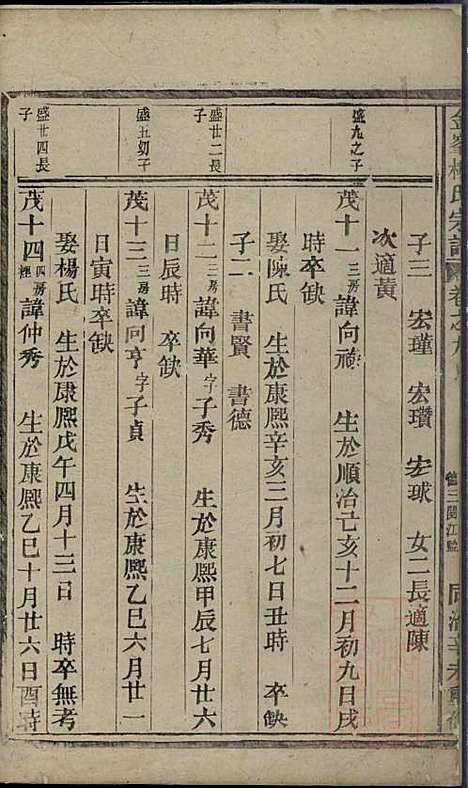 金峯楊氏宗譜 卷之九
同治辛未重修
子三 宏瑾 宏瓚 宏球 女二長適陳
次適黃
盛九之子
茂十一三房 諱向 生於順治己亥十二月初九日戌
時卒缺
娶陳氏 生於康熙辛亥三月初七日丑時 卒缺
子二 書賢 書德
盛廿二長子
茂十二三房 諱向華字子秀 生於康熙甲辰七月廿六
日辰時 卒缺
盛五幼子
茂十三三房 諱向亨字子貞 生於康熙乙巳六月廿一
日寅時卒缺
娶楊氏 生於康熙戊午四月十三日 時卒無考
盛廿四長子
茂十四四房 諱仲秀 生於康熙乙巳十月廿六日酉時